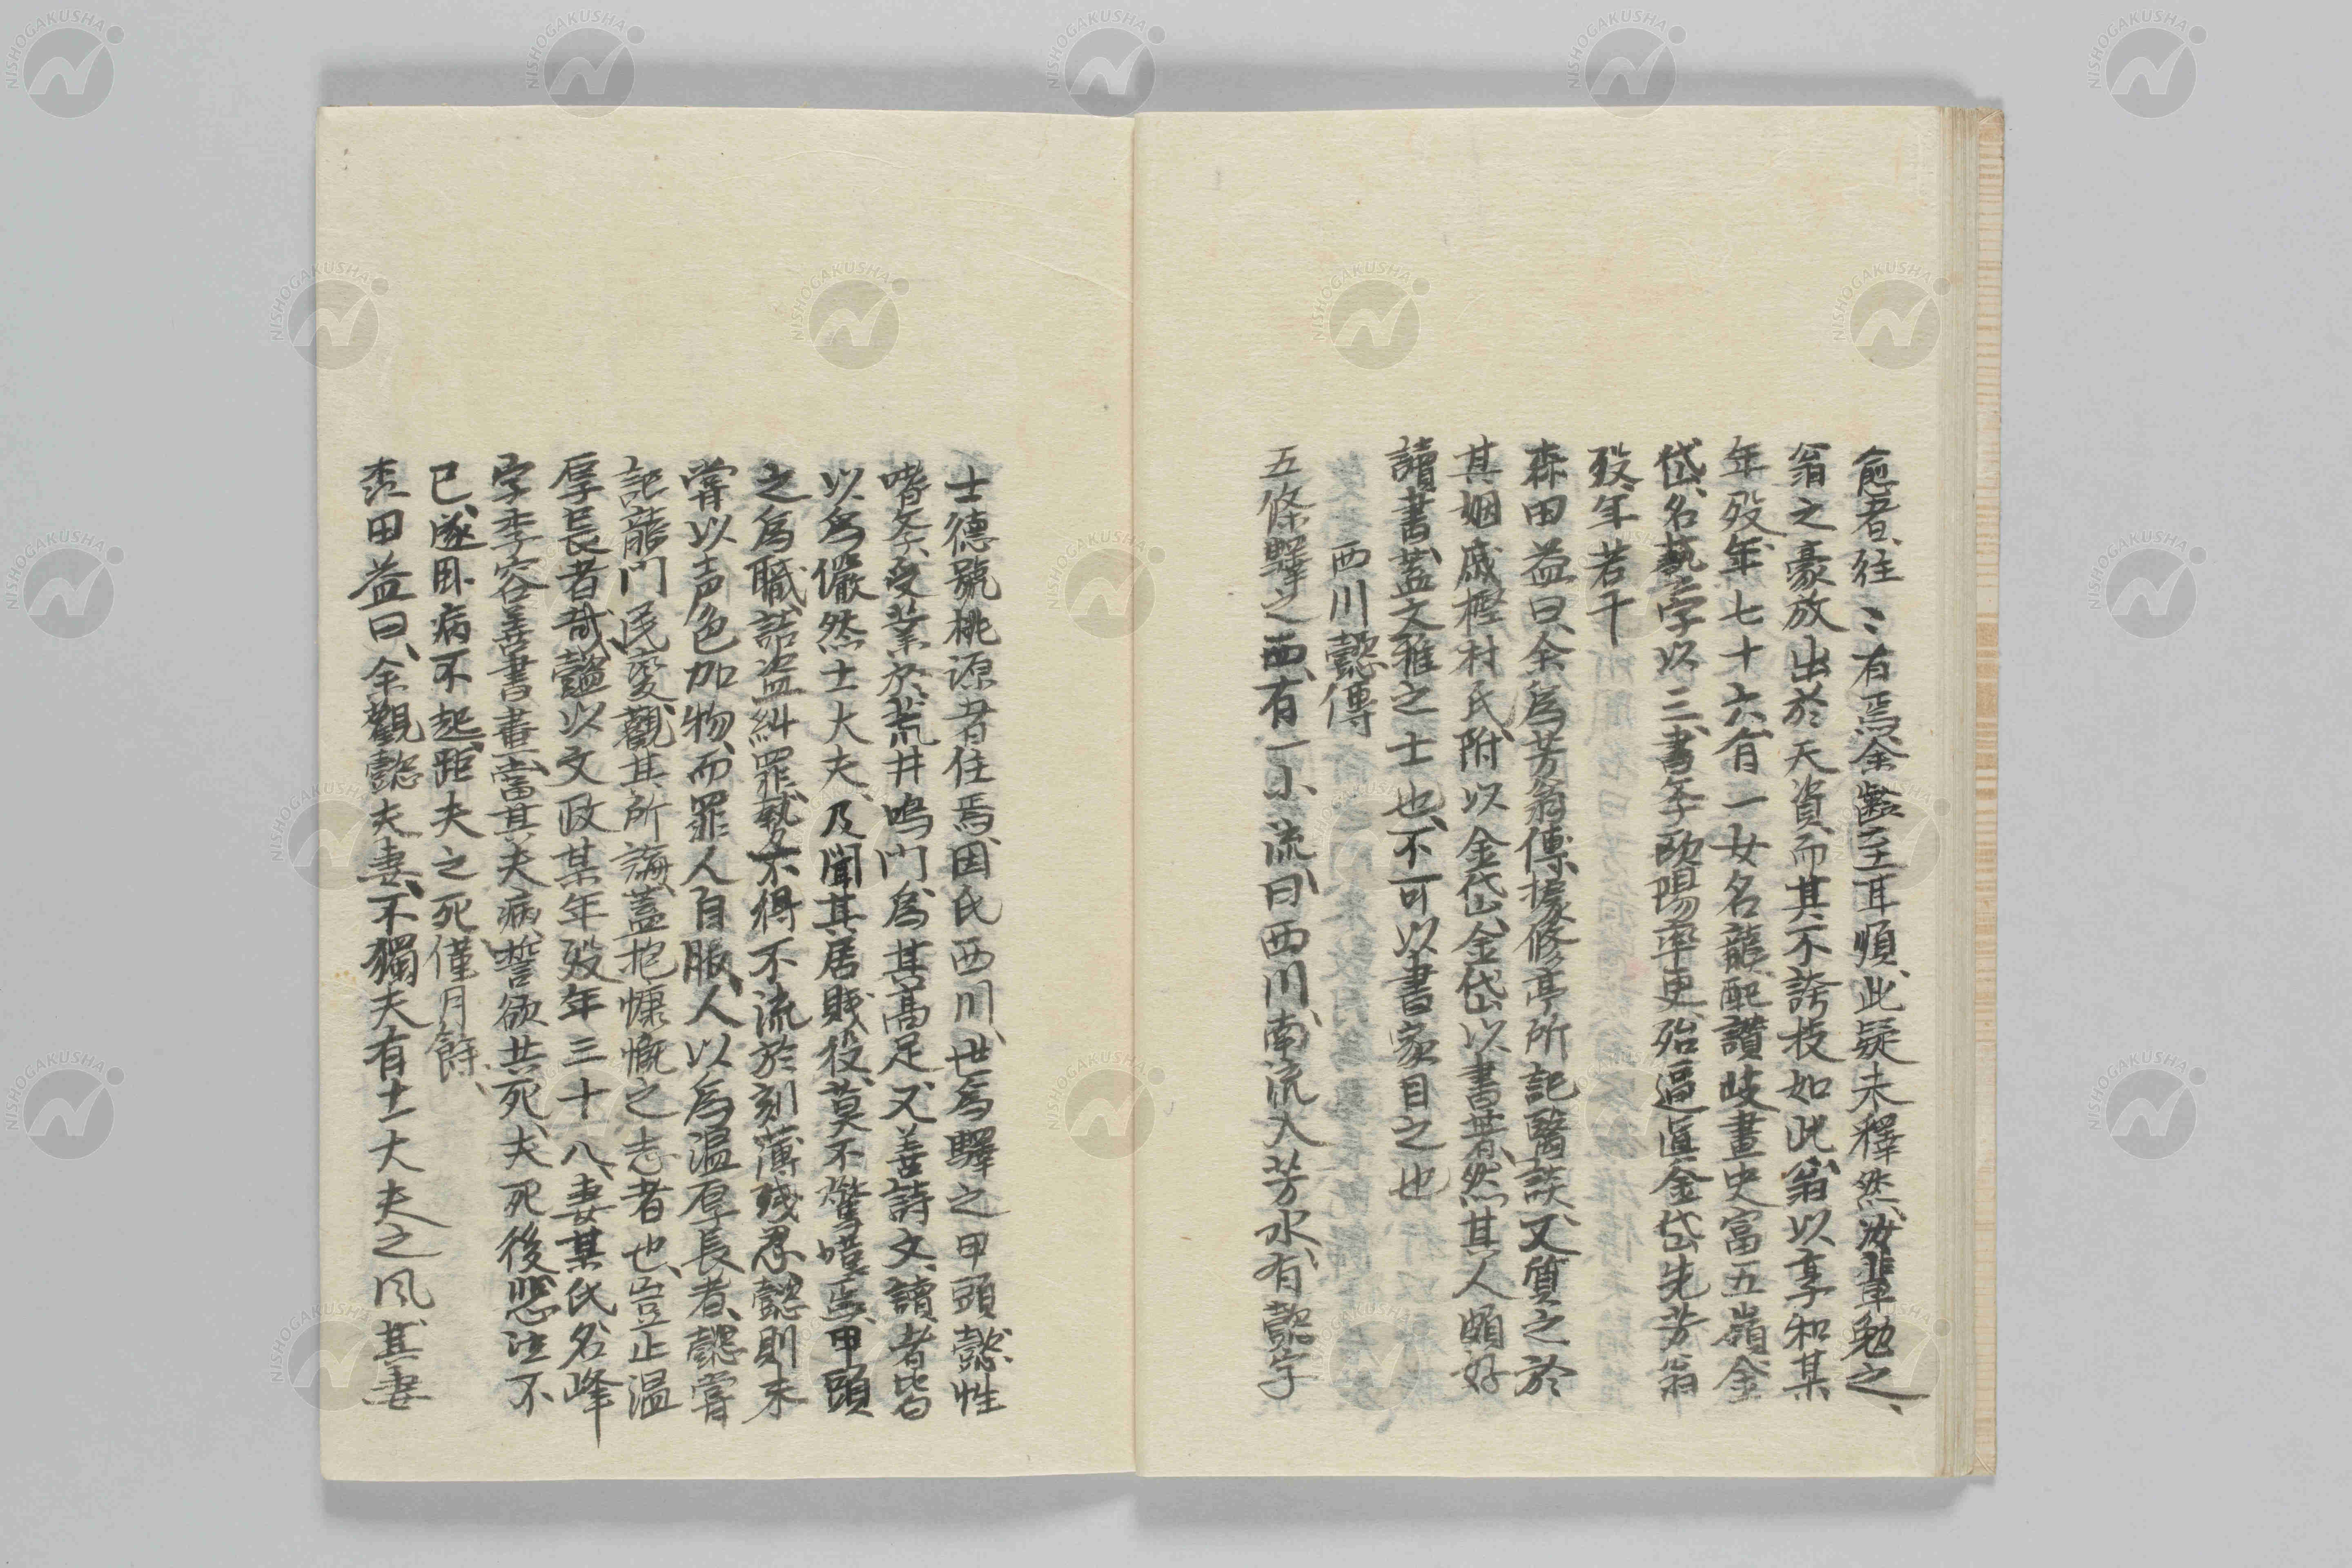 愈者、往〻有焉、余齡至耳順、此疑未釋然、汝輩勉之、
翁之豪放出於天資、而其不誇技如此、翁以享和某
年歿、年七十六、有一女名龍、配讃岐畫史富五嶺、金
岱名藝、字以三、書学歐陽率更、殆逼眞、金岱先芳翁
歿、年若干
森田益曰、余為芳翁傳、據修亭所記醫談、又質之於
其姻戚樫村氏、附以金岱、金岱以書著、然其人頗好
讀書、蓋文雅之士也、不可以書家目之也
西川懿傳
五條驛之西、有一小流、曰西川、南流入芳水、有懿字
士德號桃源者住焉、因氏西川、世為驛之甲頭、懿性
嗜学、受業於荒井鳴門、為其高足、又善詩文、讀者皆
以為儼然士大夫、及聞其居賤役、莫不驚嘆焉、甲頭
之為職、詰盗糾罪、勢不得不流於刻薄殘忍、懿則未
嘗以声色加物、而罪人自服、人以為温厚長者、懿嘗
記龍門民変、觀其所論、蓋抱慷慨之志者也、豈止温
厚長者哉、懿以文政某年歿、年三十八、妻某氏名峰
字季容、善書畫、當其夫病、誓欲共死、夫死後、悲泣不
已、遂臥病不起、距夫之死僅月餘、
森田益曰、余觀懿夫妻、不獨夫有士大夫之風、其妻